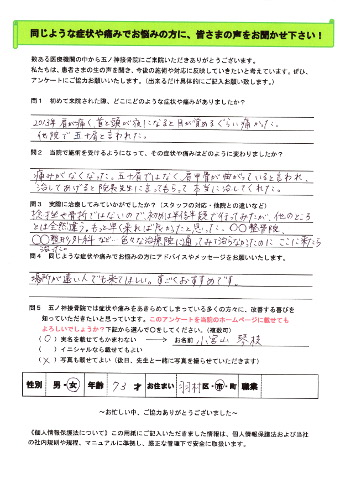 同じような症状や痛みでお悩みの方に、皆さまの声をお聞かせ下さい！
数ある医療機関の中から五ノ神接骨院にご来院いただきありがとうございます。
私たちは、患者さまの生の声を聞き、今後の施術や対応に反映していきたいと考えています。ぜひ、
アンケートにご協力お願いいたします。（出来るだけ具体的にご記入お願い致します。）
問１ 初めて来院された際、どこにどのような症状や痛みがありましたか？
2013年肩が痛く首と頭が夜になると目が覚めるぐらい痛かった。
他院で五十肩と言われた。
問２ 当院で施術を受けるようになって、その症状や痛みはどのように変わりましたか？
痛みがなくなった。五十肩ではなく肩甲骨が曲がっていると言われ、
治してあげると院長先生に言ってもらって本当に治してくれた。
問３ 実際に治療してみていかがでしたか？（スタッフの対応・他院との違いなど）
捻挫や骨折ではないので、初めは半信半疑で行ってみたが、他のところ
とは全然違う。もっと早く来れば良かったと思った。〇〇整骨院、
〇〇整形外科など…色々な治療院に通ってみて治らなかったのに、ここに来たら
治った。
問４ 同じような症状や痛みでお悩みの方にアドバイスやメッセージをお願いいたします。
場所が遠い人でも来てほしい。すごくおすすめです。
問５ 五ノ神接骨院では症状や痛みをあきらめてしまっている多くの方々に、改善する喜びを
知っていただきたいと思っています。このアンケートを当院のホームページに載せても
よろしいでしょうか？下記から選んで〇をしてください。（複数可）
（〇）実名を載せてもかまわない ――→ お名前 小宮山 琴枝
（ ）イニシャルなら載せてもよい
（〇）写真も載せてよい（後日、先生と一緒に写真を撮らせていただきます）
性別 男・女 年齢 73才 お住まい 羽村 区・市・町 職業
～お忙しい中、ご協力ありがとうございました～
《個人情報保護法について》この用紙にご記入いただきました情報は、個人情報保護法および当社
の社内規則や規程、マニュアルに準拠し、厳正な管理下で安全に取扱います。